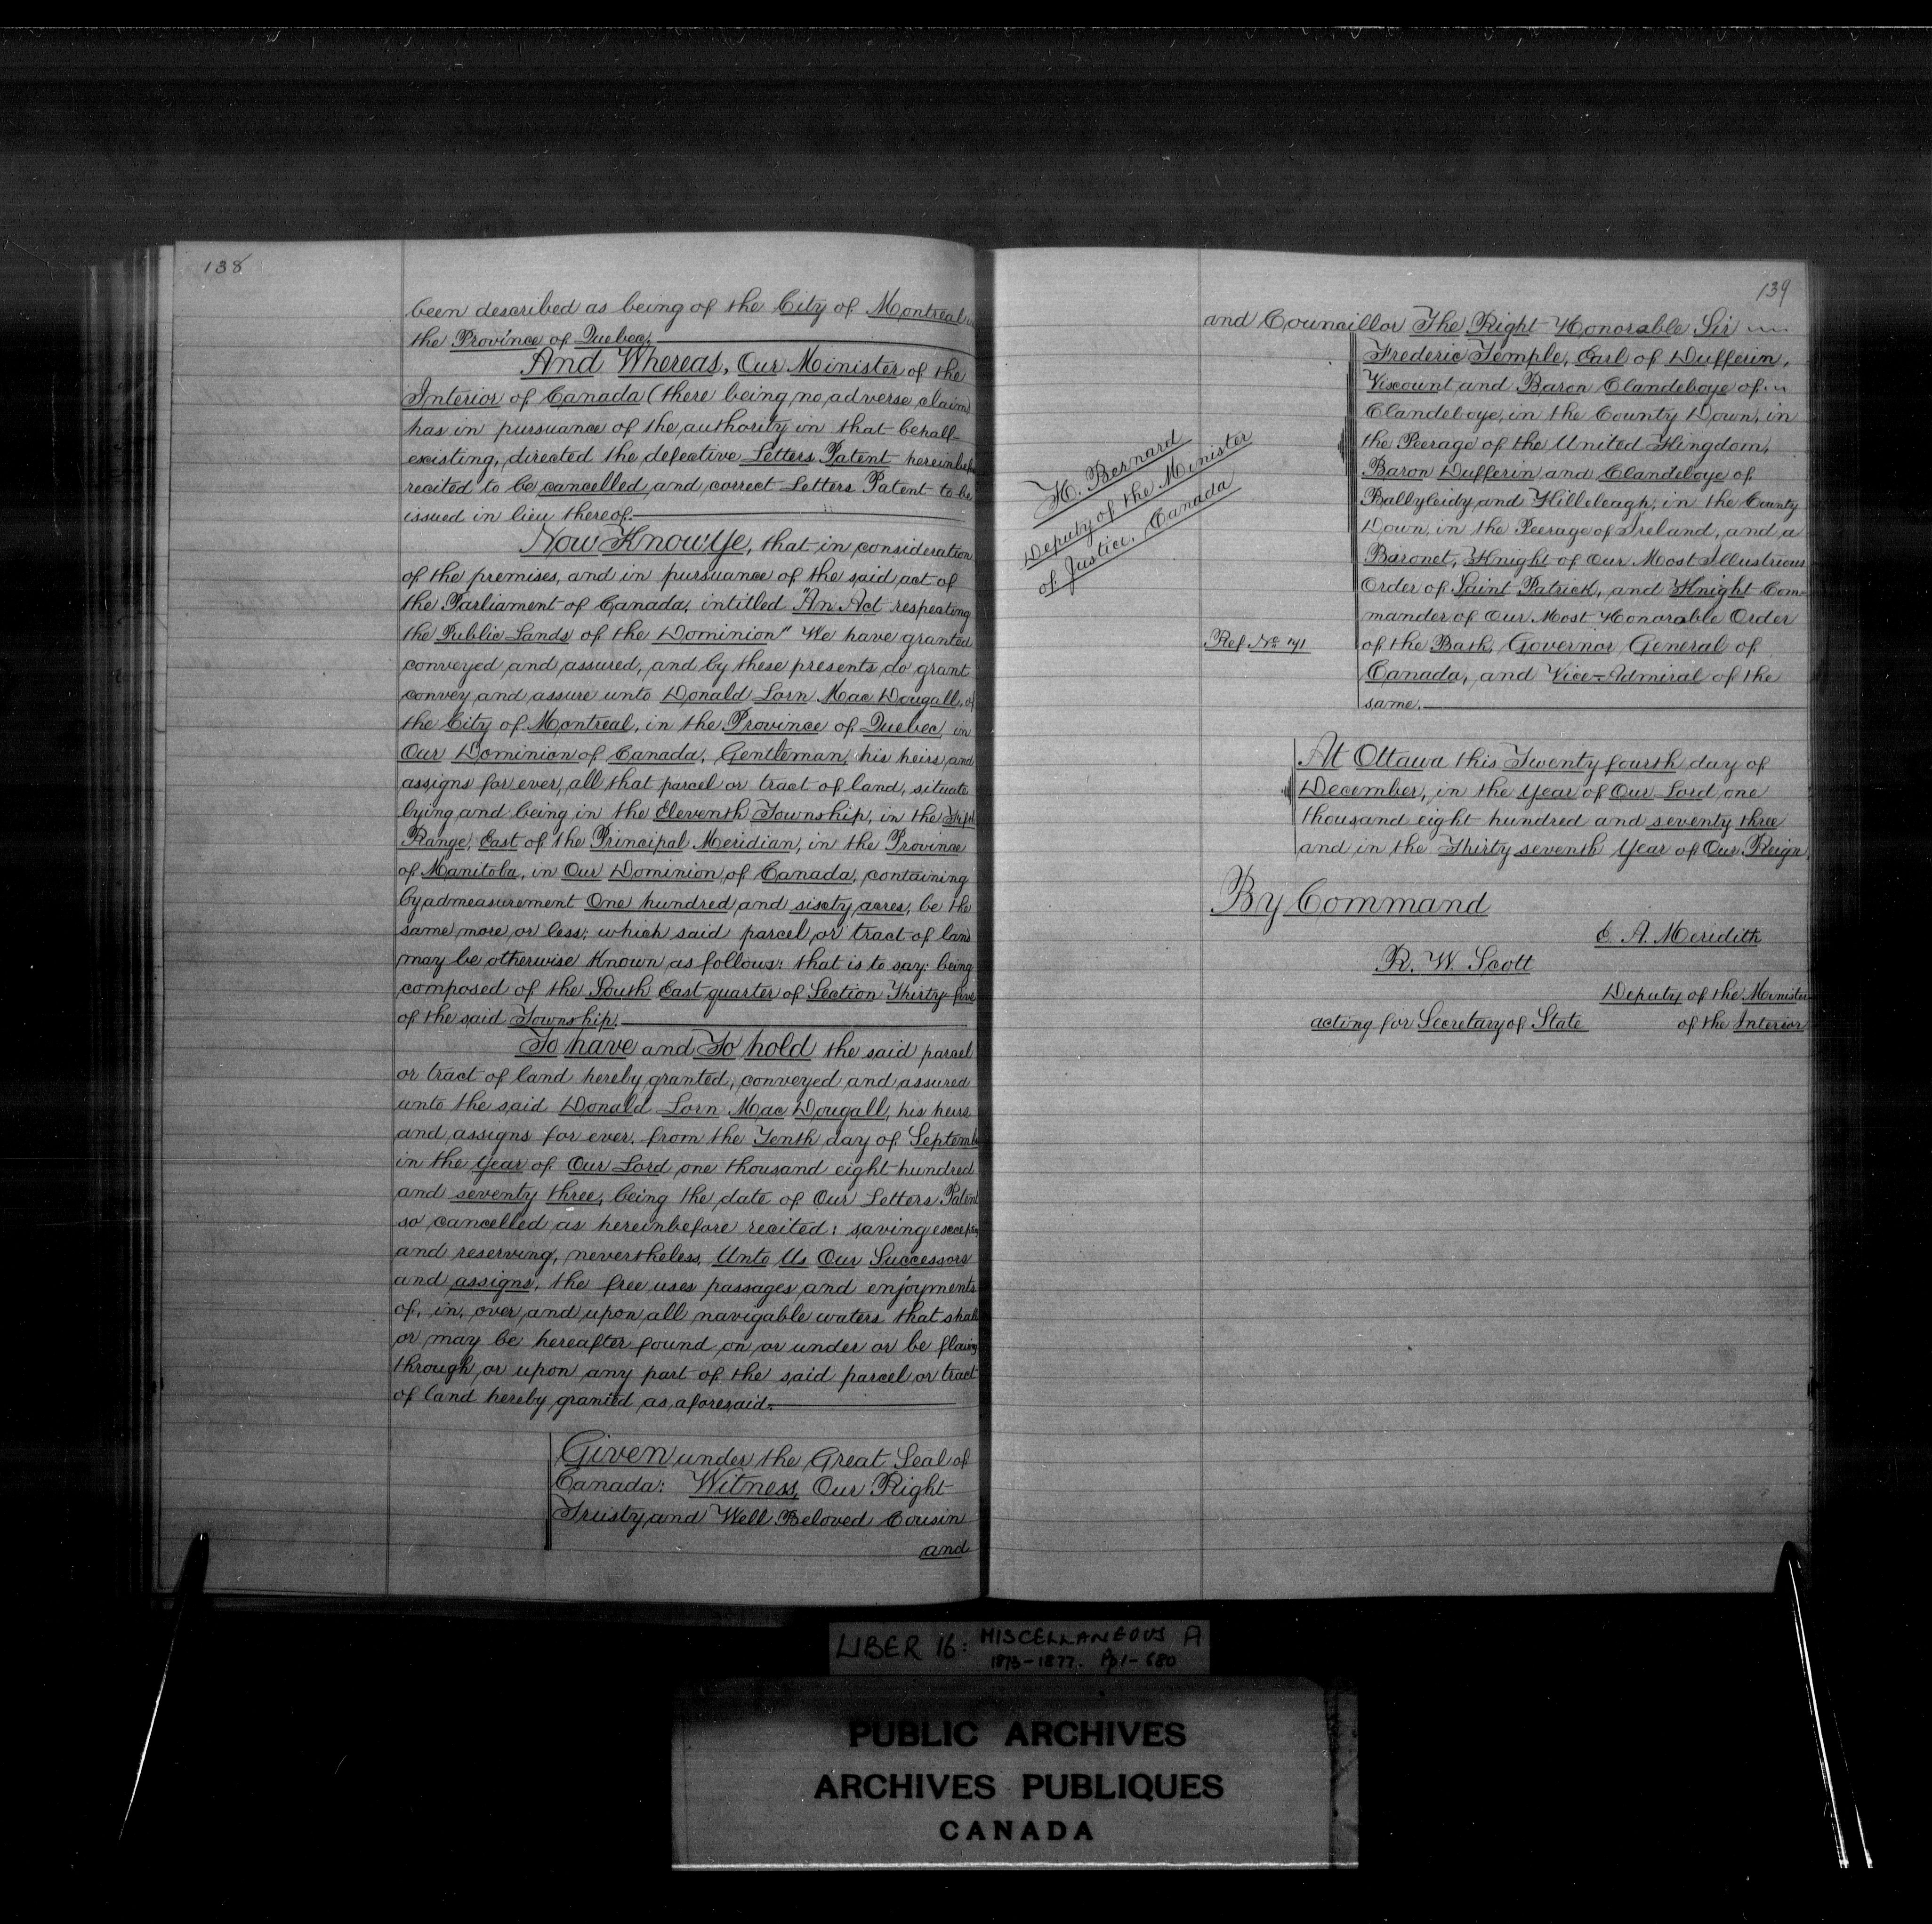 138
been described as being of the City of Montreal in
the Province of Quebec.
And Whereas, Our Minister of the
Interior of Canada (there being no adverse claim)
has in pursuance of the authority in that behalf
existing, directed the defective Letters Patent hereinbefore
recited to be cancelled and correct Letters Patent to be
issued in lieu thereof.
Now Know Ye, that in consideration
of the premises, and in pursuance of the said act of
the Parliament of Canada, intitled "An Act respecting
the Public Lands of the Dominion" We have granted
conveyed and assured, and by these presents do grant
convey and assure unto Donald Lorn Mac Dougall, of
the City of Montreal, in the Province of Quebec, in
Our Dominion of Canada, Gentleman, his heirs and
assigns for ever, all that parcel or tract of land, situate
lying and being in the Eleventh Township, in the Fifth
Range, East of the Principal Meridian, in the Province
of Manitoba, in Our Dominion of Canada, containing
by admeasurement One hundred and sixty acres, be the
same more or less; which said parcel or tract of land
may be otherwise known as follows: that is to say: being
composed of the South East quarter of Section Thirty five
of the said Township.
To have and To hold the said parcel
or tract of land hereby granted, conveyed and assured
unto the said Donald Lorn Mac Dougall, his heirs
and assigns for ever, from the Tenth day of September
in the year of Our Lord one thousand eight hundred
and seventy three, being the date of Our Letters Patent
so cancelled as hereinbefore recited: saving excepting
and reserving, nevertheless, Unto Us Our Successors
and assigns, the free uses passages and enjoyments
of, in, over and upon all navigable waters that shall
or may be hereafter found on or under or be flowing
through or upon any part of the said parcel or tract
of land hereby granted as aforesaid.
Given under the Great Seal of
Canada: Witness, Our Right
Trusty and Well Beloved Cousin
and
139
and Councillor The Right Honorable Sir
Frederic Temple, Earl of Dufferin,
Viscount and Baron Clandeboye of
Clandeboye, in the County Down, in
the Peerage of the United Kingdom,
Baron Dufferin and Clandeboye of
Ballyleidy and Killeleagh, in the County
Down, in the Peerage of Ireland, and a
Baronet, Knight of Our Most Illustrious
Order of Saint Patrick, and Knight Com-
mander of Our Most Honorable Order
of the Bath, Governor General of
Canada, and Vice-Admiral of the
same.
H. Bernard
Deputy of the Minister
of Justice. Canada
Ref. No 71
At Ottawa this Twenty fourth day of
December, in the year of Our Lord one
thousand eight hundred and seventy three
and in the Thirty seventh Year of Our Reign.
By Command
E. A. Meridith
R. W. Scott
Deputy of the Minister
acting for Secretary of State of the Interior
LIBER 16: MISCELLANEOUS A
1873-1877. Pp1-680
PUBLIC ARCHIVES
ARCHIVES PUBLIQUES
CANADA